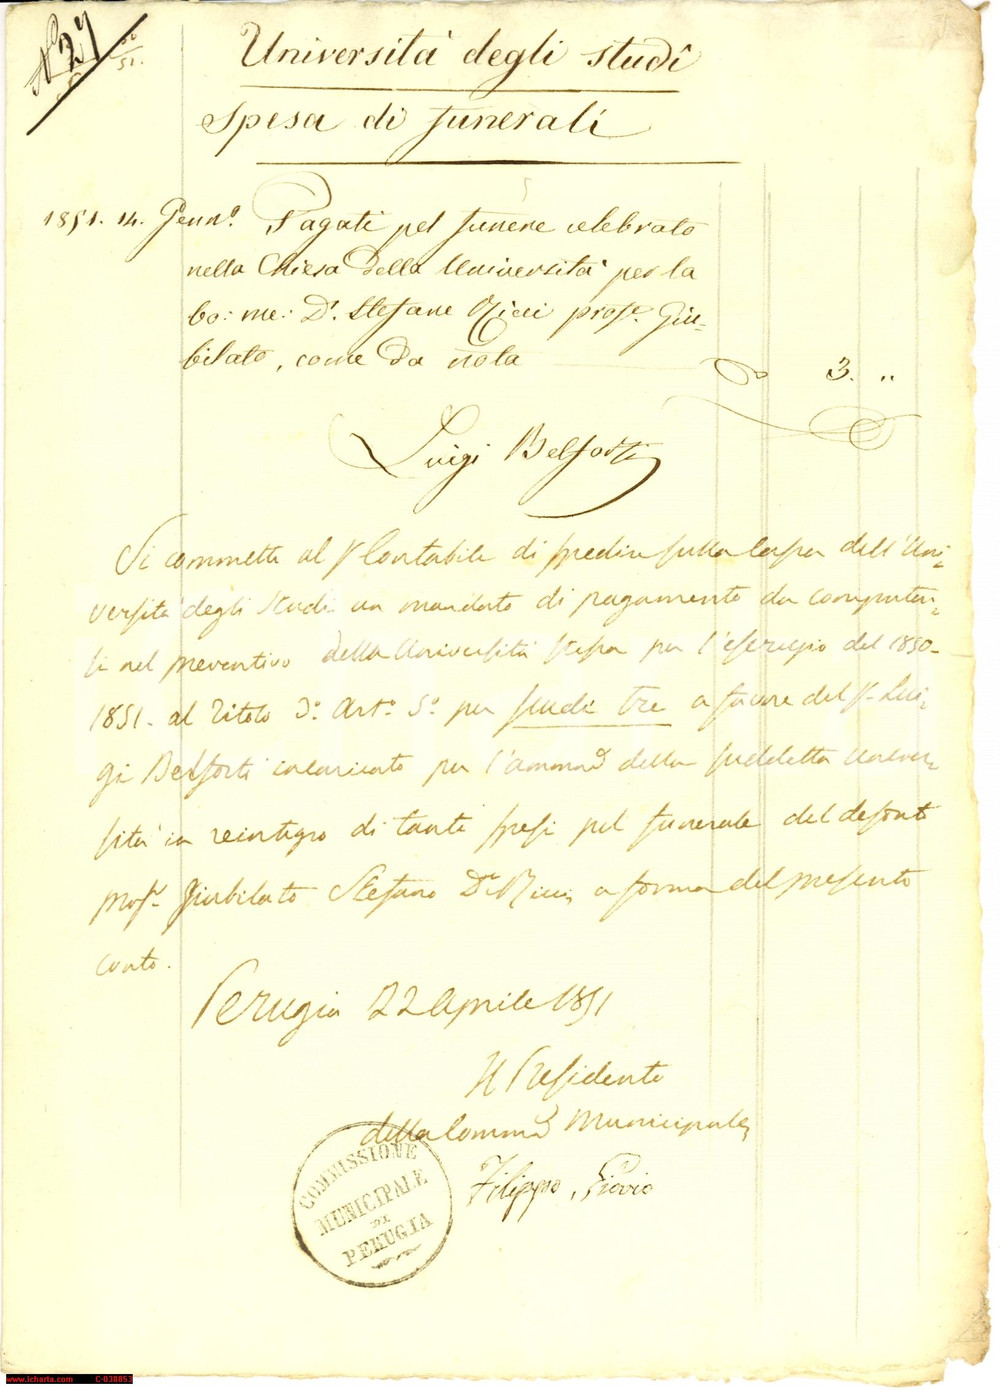 N° 27
50
51.
Università degli studî
Spesa di funerali
1851. 14. Genn°. Pagati pel funere celebrato
nella Chiesa della Università per la
bo: me: Dr. Stefano Ricci profe. Giu-
bilato, come da nota 3. "
Luigi Belforti
Si commette al Sr Contabile di spedire sulla Cassa dell'Uni=
versità degli Studi un mandato di pagamento da computar=
si nel preventivo della Università stessa per l'esercizio del 1850-
1851. al Titolo 3°. Art°. 5°. per scudi tre a favore del Sr. Lui=
gi Belforti incaricato per l'ammne della suddetta Univer=
sità in reintegro di tanti spesi pel funerale del defonto
profr. Giubilato Stefano Dr Ricci, a forma del presente
conto.
Perugia 22 Aprile 1851
Il Presidente
della Comme Municipale
Filippo
COMMISSIONE
MUNICIPALE
DI
PERUGIA
www.icharta.com C-038853